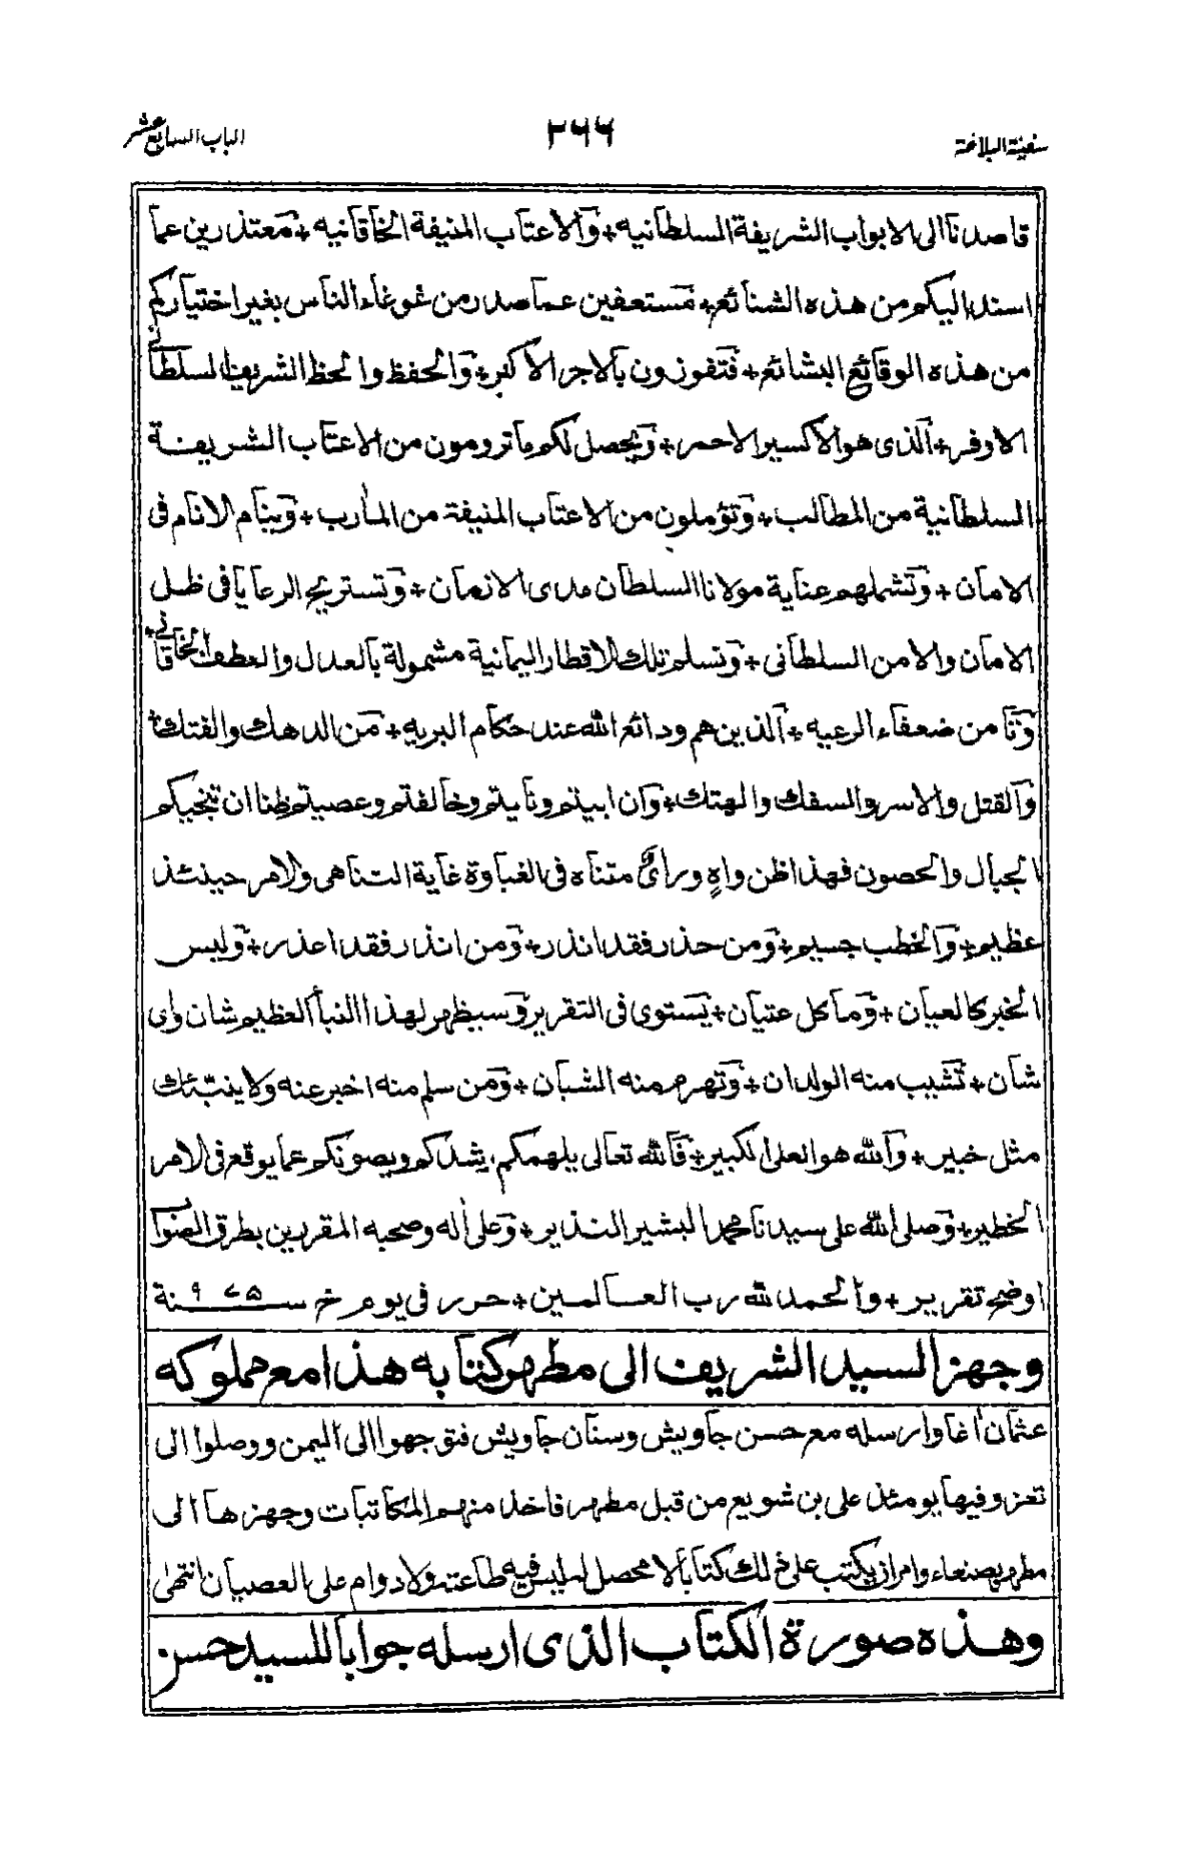 سفينة البلاغة
٢٦٦
الباب السابع عشر
قاصدنا الى الابواب الشريفة السلطانيه + والاعتاب المنيفة الخاقانيه + معتذرين عما
اسند اليكم من هذه الشنائع + مستعفين عما صدر من غوغاء الناس بغير اختياركم
من هذه الوقائع البشائع + فتفوزون بالاجر الاكبر + والحفظ والحظ الشريف السلطانى
الاوفر + الذى هو الاكسير الاحمر + ويحصل لكم ما ترومون من الاعتاب الشريفة
السلطانية من المطالب + وتؤملون من الاعتاب المنيفة من المأرب + وينام الانام فى
الامان + وتشملهم عناية مولانا السلطان مدى الازمان + وتستريح الرعايا فى ظل
الامان والامن السلطانى + وتسلم تلك الاقطار اليمانية مشمولة بالعدل والعطف الخاقانى +
وتامن ضعفاء الرعيه + الذين هم ودائع الله عند حكام البريه + من الدهك والفتك +
والقتل والاسر والسفك والهتك + وان ابيتم ونأيتم وخالفتم وعصيتم ظنا ان تنجيكم
الجبال والحصون فهذا ظن واهٍ ورأى متناه فى الغباوة غاية التناهى والامر حينئذ
عظيم + والخطب جسيم + ومن حذر فقد انذر + ومن انذر فقد اعذر + وليس
الخبر كالعيان + وما كل عتيان + يستوى فى التقرير وسيظهر لهذا النبأ العظيم شان واى
شان + تشيب منه الولدان + وتهرم منه الشبان + ومن سلم منه اخبر عنه ولا ينبّئك
مثل خبير + والله هو العلى الكبير + فالله تعالى يلهمكم رشدكم ويصونكم عما يوقع فى الامر
الخطير + وصلى الله على سيدنا محمد البشير النذير + وعلى أله وصحبه المقررين بطرق الصواب
اوضح تقرير + والحمد لله رب العالمين + حرر فى يوم خ سنة ٩٧٥
وجهز السيد الشريف الى مطهر كتابه هذا مع مملوكه
عثمان أغا وارسله مع حسن جاويش وسنان جاويش فتوجهوا الى اليمن ووصلوا الى
تعز وفيها يومئذ على بن شويع من قبل مطهر فاخذ منهم المكاتبات وجهزها الى
مطهر بصنعاء وامر ان يكتب على ذلك كتابا لا محصل له ليس فيه طاعته ولا دوام على العصيان انتهى
وهذه صورة الكتاب الذى ارسله جوابا للسيد حسن